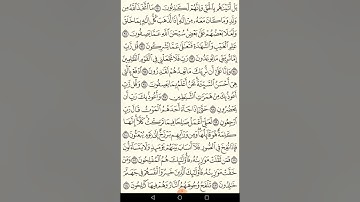 بَلْ أَتَيْنَٰهُم بِٱلْحَقِّ وَإِنَّهُمْ لَكَٰذِبُونَ ٩٠ مَا ٱتَّخَذَ ٱللَّهُ مِن
وَلَدٍ وَمَا كَانَ مَعَهُۥ مِنْ إِلَٰهٍ إِذًا لَّذَهَبَ كُلُّ إِلَٰهٍۭ بِمَا خَلَقَ
وَلَعَلَا بَعْضُهُمْ عَلَىٰ بَعْضٍ سُبْحَٰنَ ٱللَّهِ عَمَّا يَصِفُونَ ٩١
عَٰلِمِ ٱلْغَيْبِ وَٱلشَّهَٰدَةِ فَتَعَٰلَىٰ عَمَّا يُشْرِكُونَ ٩٢ قُل رَّبِّ
إِمَّا تُرِيَنِّى مَا يُوعَدُونَ ٩٣ رَبِّ فَلَا تَجْعَلْنِى فِى ٱلْقَوْمِ ٱلظَّٰلِمِينَ
٩٤ وَإِنَّا عَلَىٰٓ أَن نُّرِيَكَ مَا نَعِدُهُمْ لَقَٰدِرُونَ ٩٥ ٱدْفَعْ بِٱلَّتِى
هِىَ أَحْسَنُ ٱلسَّيِّئَةَ نَحْنُ أَعْلَمُ بِمَا يَصِفُونَ ٩٦ وَقُل رَّبِّ
أَعُوذُ بِكَ مِنْ هَمَزَٰتِ ٱلشَّيَٰطِينِ ٩٧ وَأَعُوذُ بِكَ رَبِّ أَن
يَحْضُرُونِ ٩٨ حَتَّىٰٓ إِذَا جَآءَ أَحَدَهُمُ ٱلْمَوْتُ قَالَ رَبِّ
ٱرْجِعُونِ ٩٩ لَعَلِّىٓ أَعْمَلُ صَٰلِحًا فِيمَا تَرَكْتُ كَلَّآ إِنَّهَا
كَلِمَةٌ هُوَ قَآئِلُهَا وَمِن وَرَآئِهِم بَرْزَخٌ إِلَىٰ يَوْمِ يُبْعَثُونَ ١٠٠
فَإِذَا نُفِخَ فِى ٱلصُّورِ فَلَآ أَنسَابَ بَيْنَهُمْ يَوْمَئِذٍ وَلَا يَتَسَآءَلُونَ
١٠١ فَمَن ثَقُلَتْ مَوَٰزِينُهُۥ فَأُو۟لَٰٓئِكَ هُمُ ٱلْمُفْلِحُونَ ١٠٢ وَمَنْ
خَفَّتْ مَوَٰزِينُهُۥ فَأُو۟لَٰٓئِكَ ٱلَّذِينَ خَسِرُوٓا۟ أَنفُسَهُمْ فِى جَهَنَّمَ
خَٰلِدُونَ ١٠٣ تَلْفَحُ وُجُوهَهُمُ ٱلنَّارُ وَهُمْ فِيهَا كَٰلِحُونَ ١٠٤